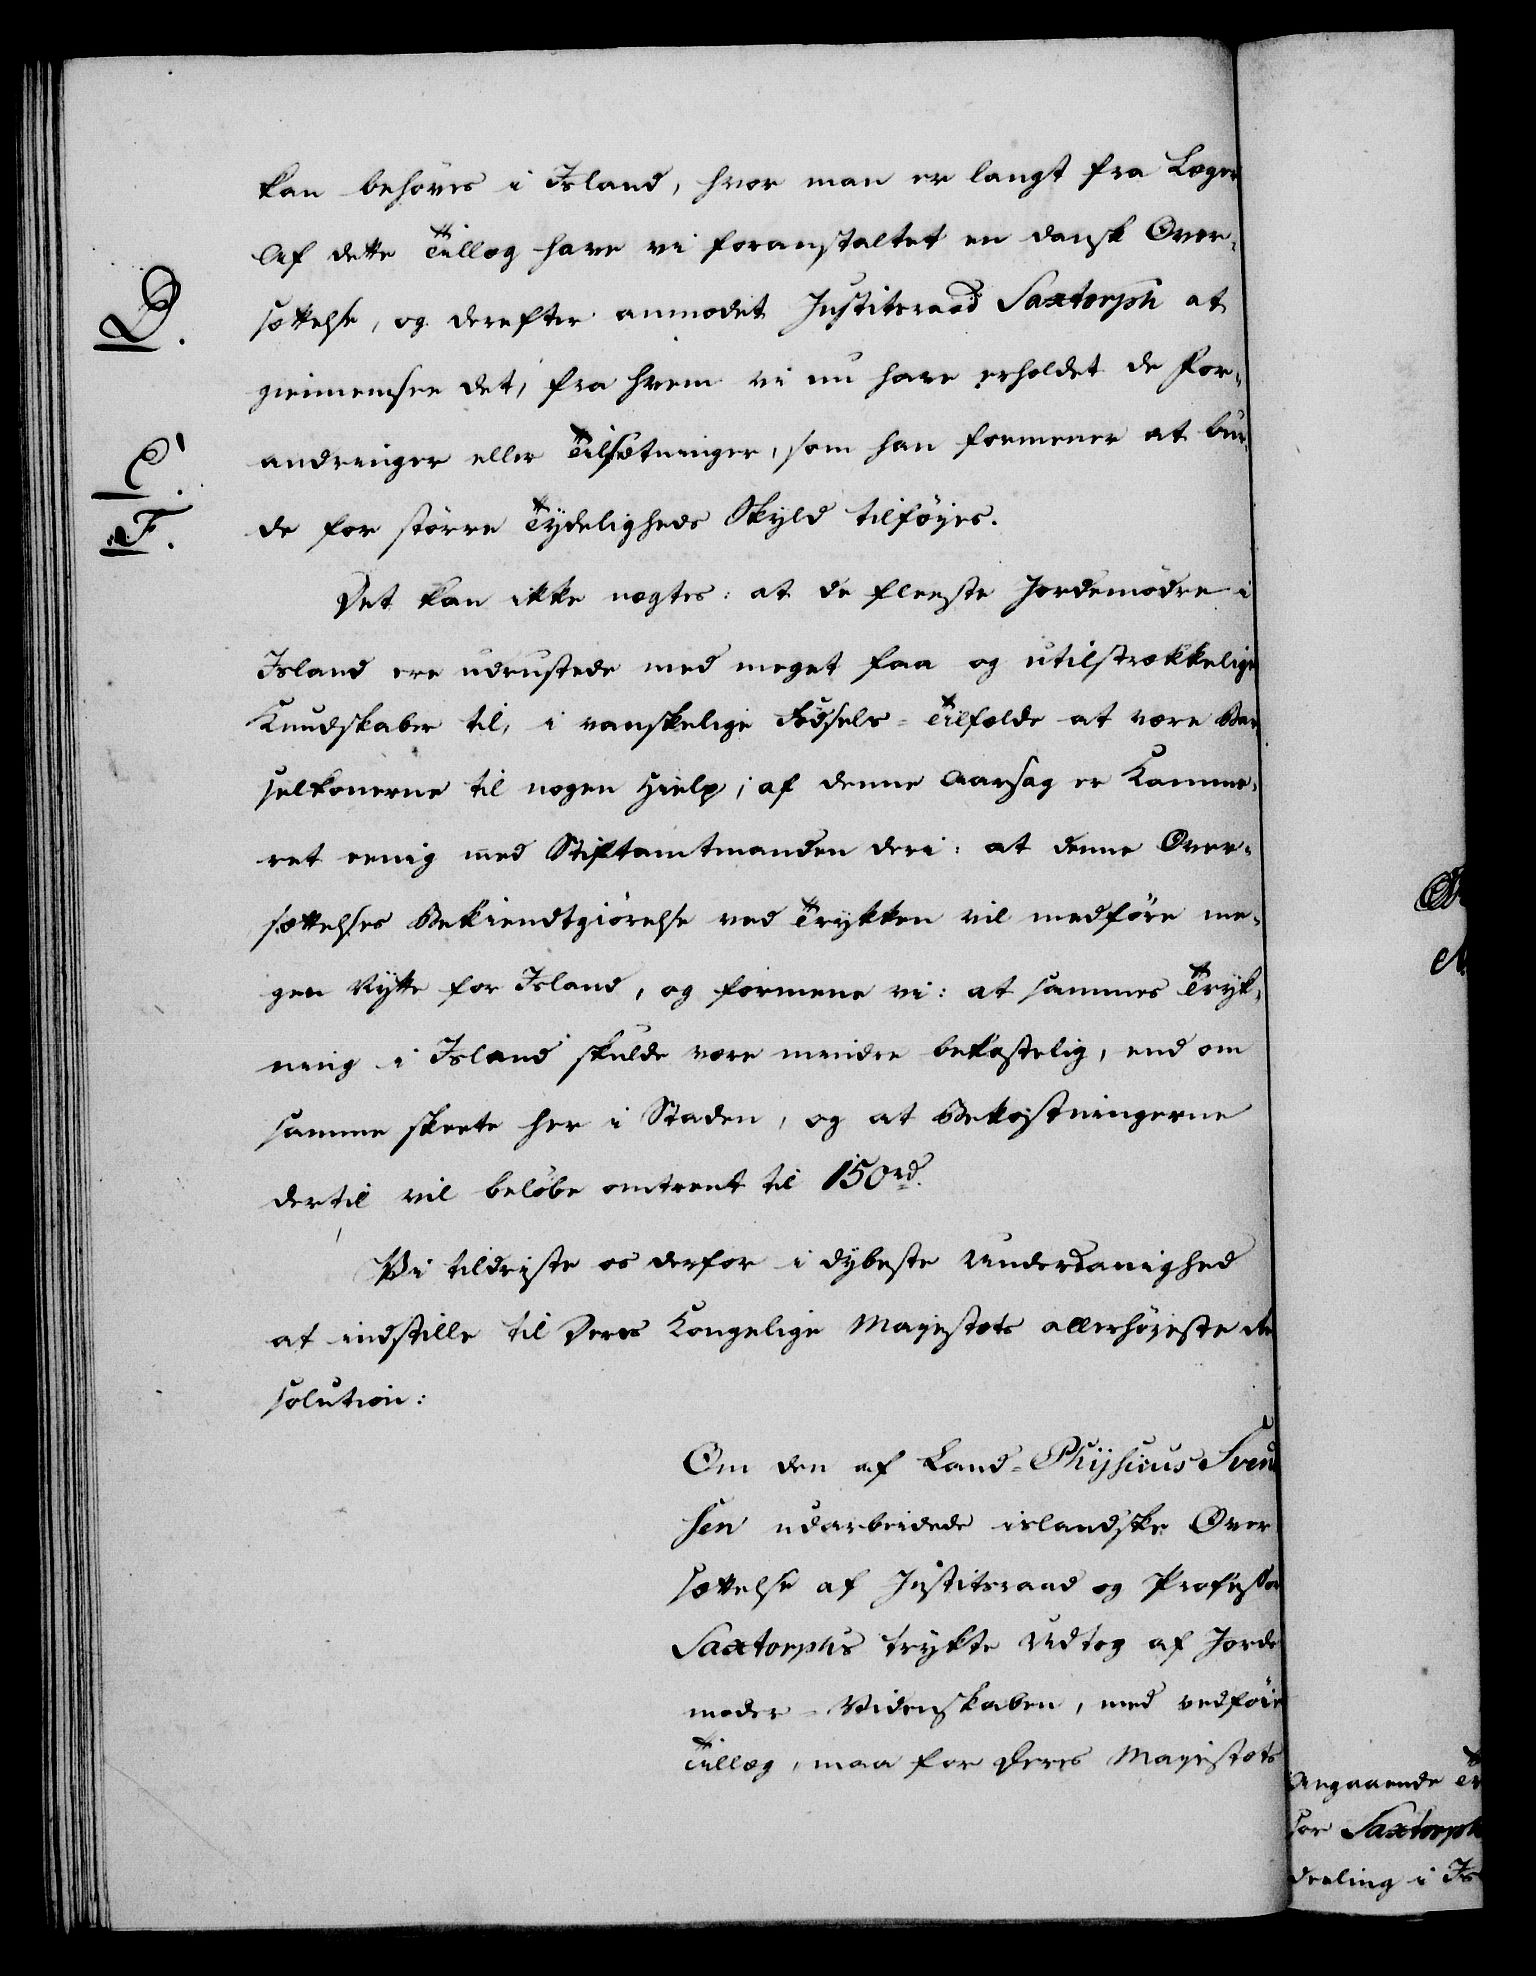 kan behöves i Island, hvor man er langt fra Læger
Af dette Tillæg have vi foranstaltet en dansk Over-
D.
sættelse, og derefter anmodet Justitsraad Saxtorph at
giennemsee det, fra hvem vi nu have erholdet de For-
E.
andringer eller Tilsætninger, som han formener at bur-
F.
de for större Tydeligheds Skyld tilföyes.
Det kan ikke nægtes: at de fleeste Jordemödre i
Island ere udrustede med meget faa og utilstrækkelige
Kundskaber til, i vanskelige Födsels-Tilfælde at være Bar
selkonerne til nogen Hielp; af denne Aarsag er Kamme-
ret eenig med Stiftamtmanden deri: at denne Over-
sættelses Bekiendtgiörelse ved Trykken vil medföre me-
gen Nytte for Island, og formene vi: at sammes Tryk-
ning i Island skulde være mindre bekostelig, end om
samme skeete her i Staden, og at Bekostningerne
dertil vil belöbe omtrent til 150 rd.
Vi tildriste os derfor i dybeste Underdanighed
at indstille til Deres Kongelige Majestæts allerhöjeste Re
solution:
Om den af Land-Physicus Svend
sen udarbeidede islandske Over
sættelse af Justitsraad og Professor
Saxtorphs trykte Udtog af Jorde
moder-Videnskaben, med vedföie
Tillæg, maa for Deres Majestæts
Angaaende Tr
sor Saxtorph
deeling i Is